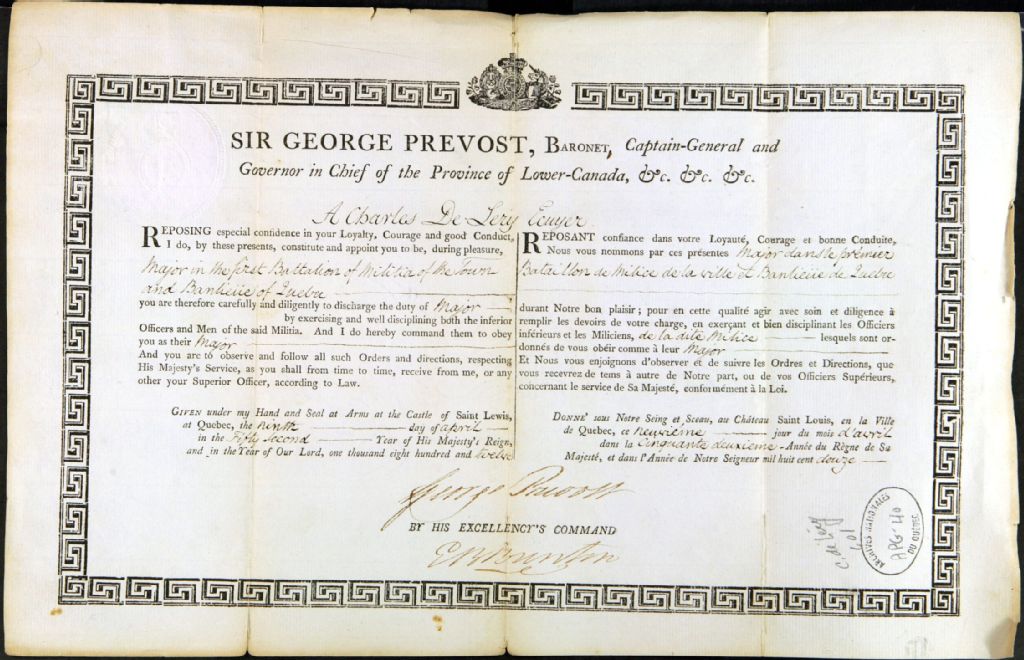 SIR GEORGE PREVOST, BARONET, Captain-General and
Governor in Chief of the Province of Lower-Canada, &c. &c. &c.
A Charles De Lery Ecuyer
REPOSING especial confidence in your Loyalty, Courage and good Conduct,
I do, by these presents, constitute and appoint you to be, during pleasure,
Major in the first Battalion of Militia of the Town
and Banlieüe of Quebec
you are therefore carefully and diligently to discharge the duty of Major
by exercising and well disciplining both the inferior
Officers and Men of the said Militia. And I do hereby command them to obey
you as their Major
And you are to observe and follow all such Orders and directions, respecting
His Majesty's Service, as you shall from time to time, receive from me, or any
other your Superior Officer, according to Law.
GIVEN under my Hand and Seal at Arms at the Castle of Saint Lewis,
at Quebec, the ninth day of april
in the Fifty Second Year of His Majesty's Reign,
and in the Year of Our Lord, one thousand eight hundred and twelve
REPOSANT confiance dans votre Loyauté, Courage et bonne Conduite,
Nous vous nommons par ces présentes Major dans le premier
Bataillon de Milice de la ville et Banlieüe de Quebec
durant Notre bon plaisir; pour en cette qualité agir avec soin et diligence à
remplir les devoirs de votre charge, en exerçant et bien disciplinant les Officiers
inférieurs et les Miliciens, de la dite Milice lesquels sont or-
donnés de vous obéir comme à leur Major
Et Nous vous enjoignons d'observer et de suivre les Ordres et Directions, que
vous recevrez de tems à autre de Notre part, ou de vos Officiers Supérieurs,
concernant le service de Sa Majesté, conformément à la Loi.
DONNE' sous Notre Seing et Sceau, au Château Saint Louis, en la Ville
de Quebec, ce neuvième jour du mois d'avril
dans la Cinquante deuxième Année du Règne de Sa
Majesté, et dans l'Année de Notre Seigneur mil huit cent douze
George Prevost
BY HIS EXCELLENCY'S COMMAND
E B Brenton
C. de Léry
401
ARCHIVES NATIONALES
DU QUÉBEC
APG-40